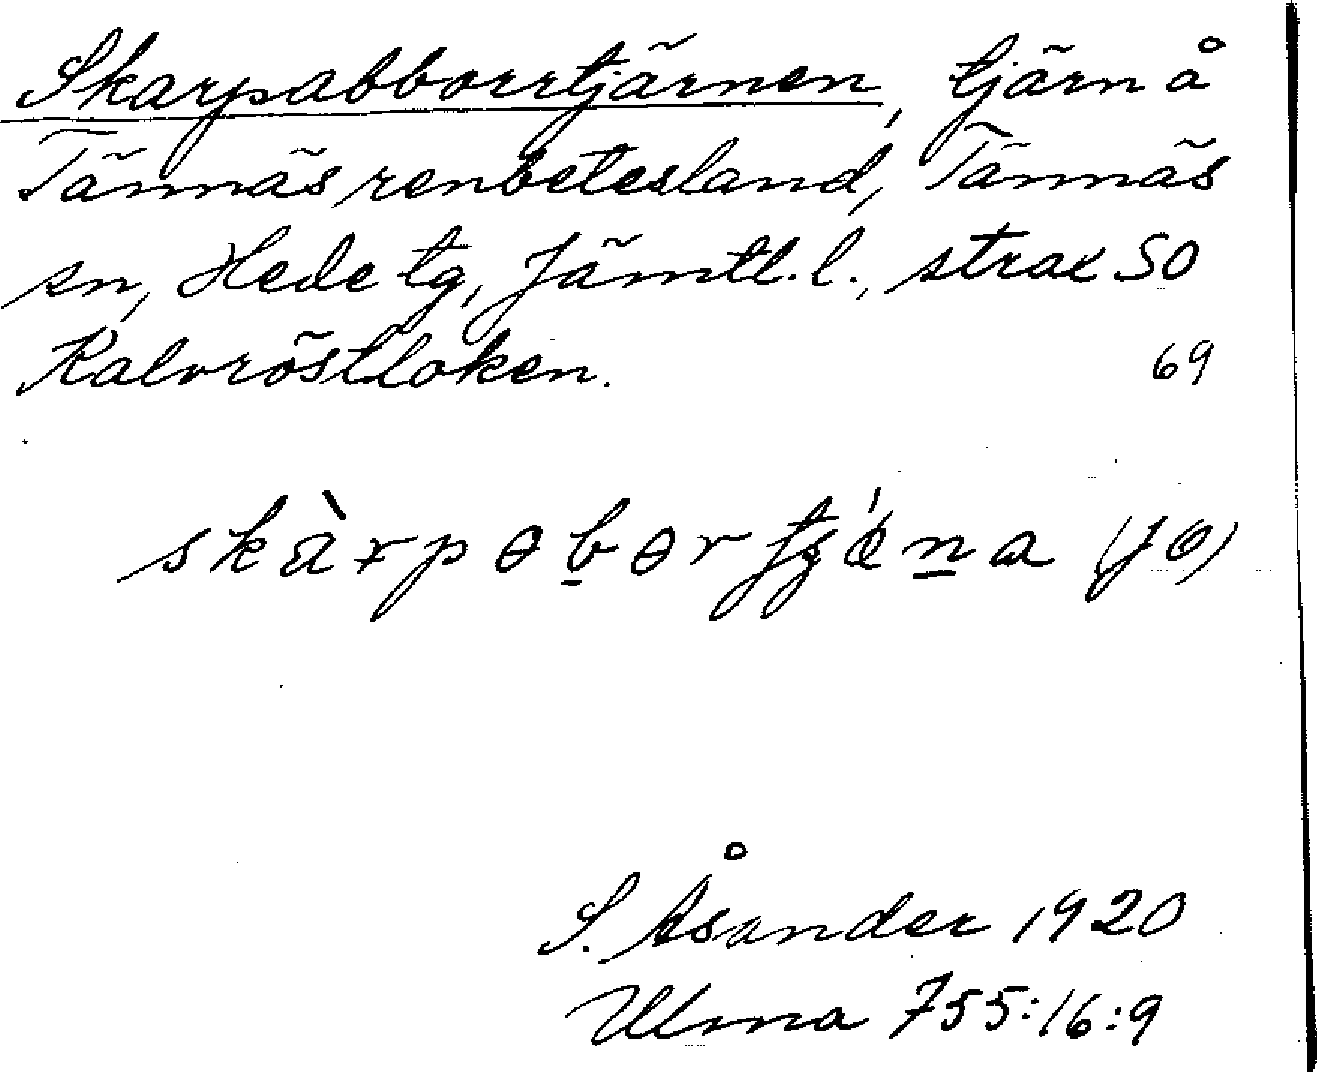 Skarpabborrtjärnen, tjärn å
Tännäs renbetesland, Tännäs
sn, Hede tg, Jämtl. l., strax SO
Kalvröstloken. 69
S. Åsander 1920
Ulma 755:16:9